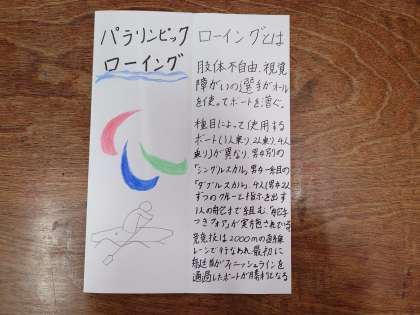 パラリンピック
ローイング
ローイングとは
肢体不自由、視覚
障がいの選手がオール
を使ってボートを漕ぐ。
種目によって使用する
ボート(1人乗り、2人乗り、4人
乗り)が異なり、男女別の
「シングルスカル」、男女一組の
「ダブルスカル」、4人(男女2人
ずつのクルーと指示を出す
1人の舵手で組む、「舵手
つきフォア」が実施されている
競技は2000mの直線
レーンで行なわれ、最初に
がフィニッシュラインを
通過したボートが勝利になる